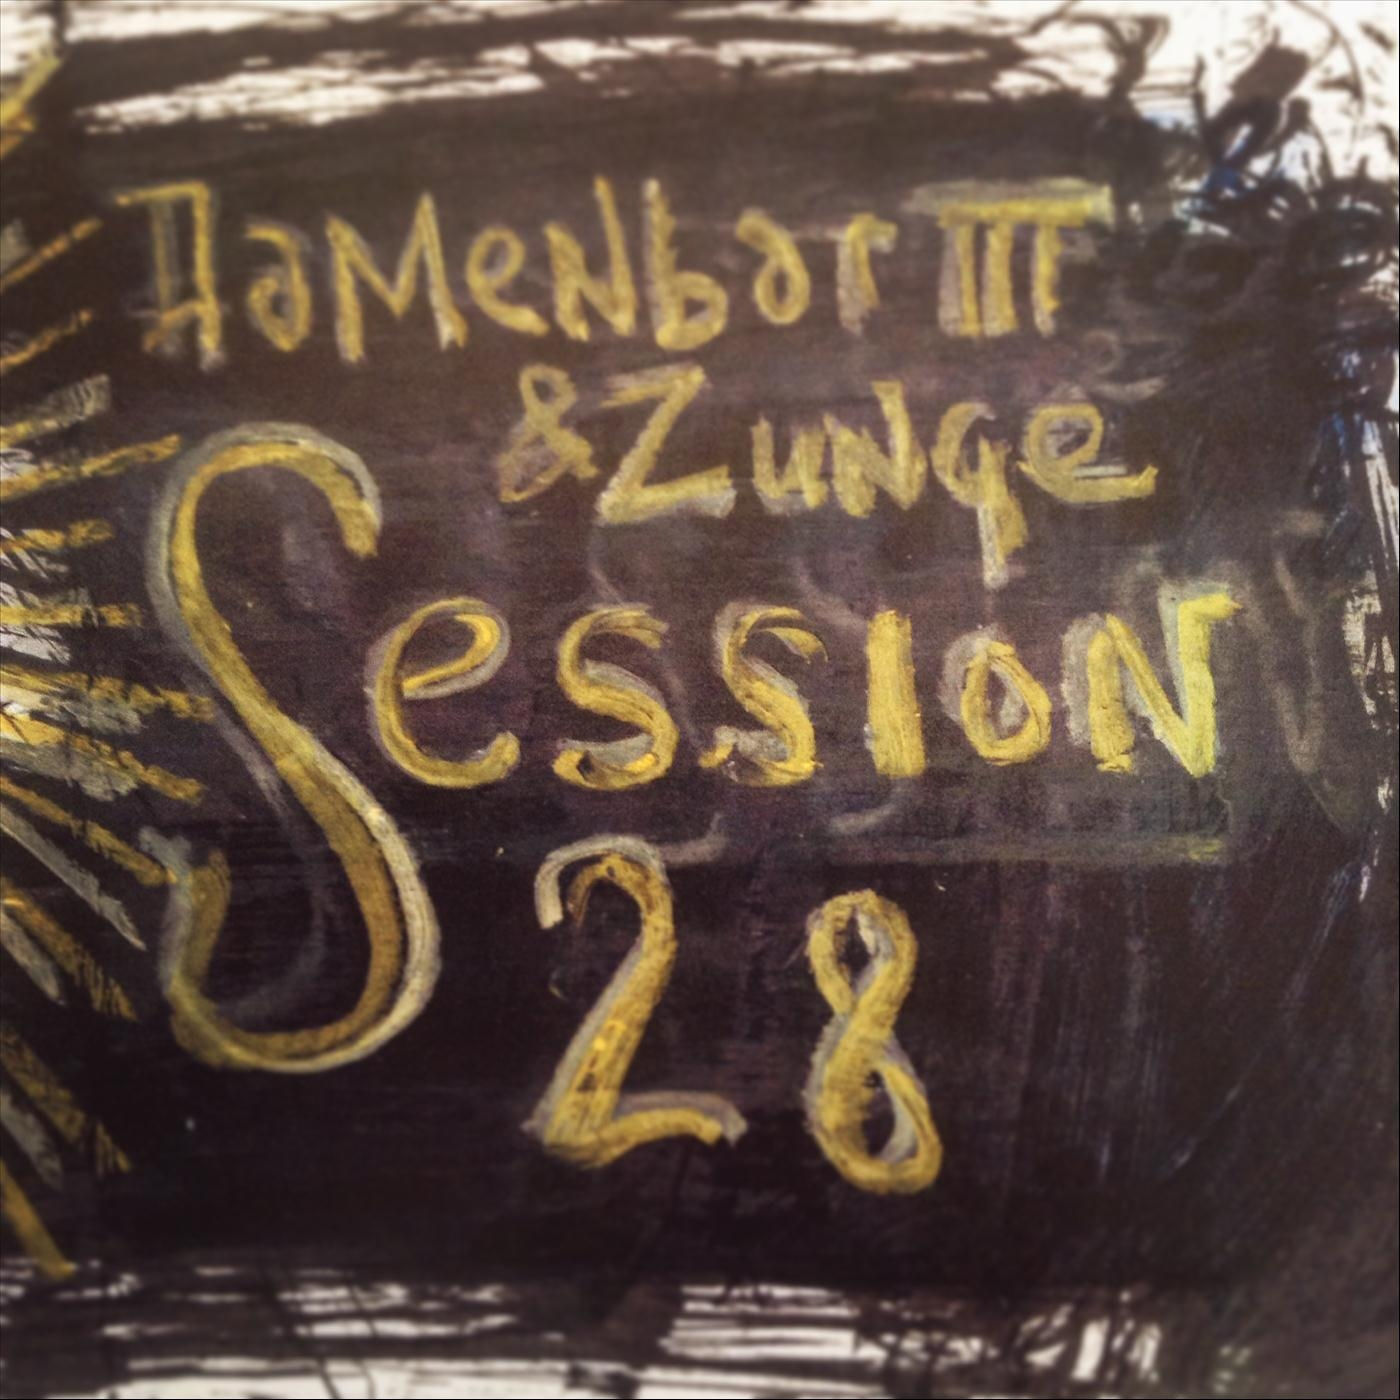 DaMeNbar III
& ZuNge
SessioN
28